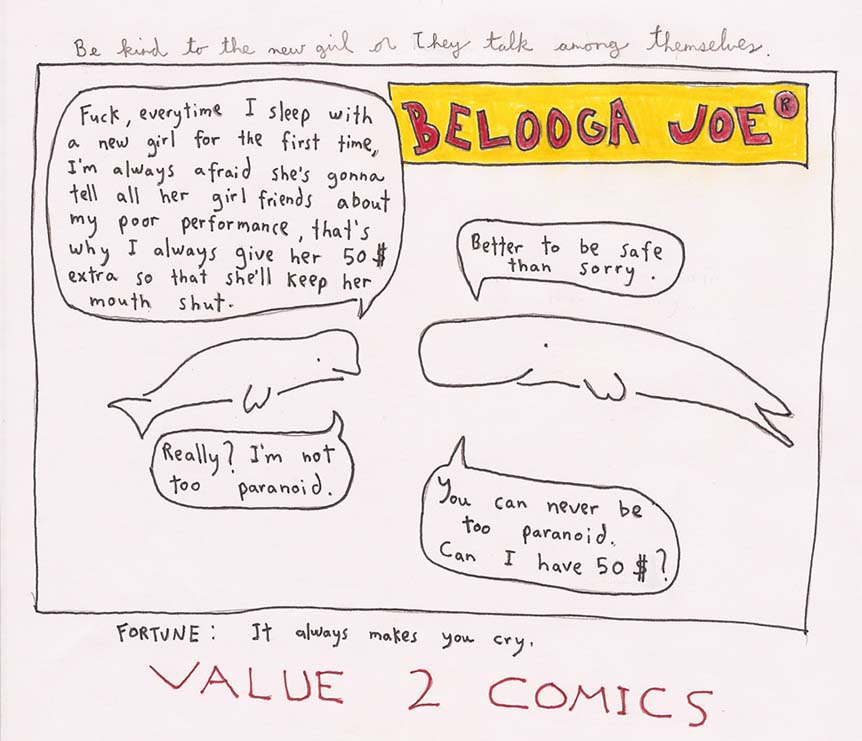 Be kind to the new girl or They talk among themselves.
BELOOGA JOE®
Fuck, everytime I sleep with
a new girl for the first time,
I'm always afraid she's gonna
tell all her girl friends about
my poor performance, that's
why I always give her 50 $
extra so that she'll keep her
mouth shut.
Better to be safe
than sorry.
Really? I'm not
too paranoid.
You can never be
too paranoid.
Can I have 50 $?
FORTUNE: It always makes you cry.
VALUE 2 COMICS